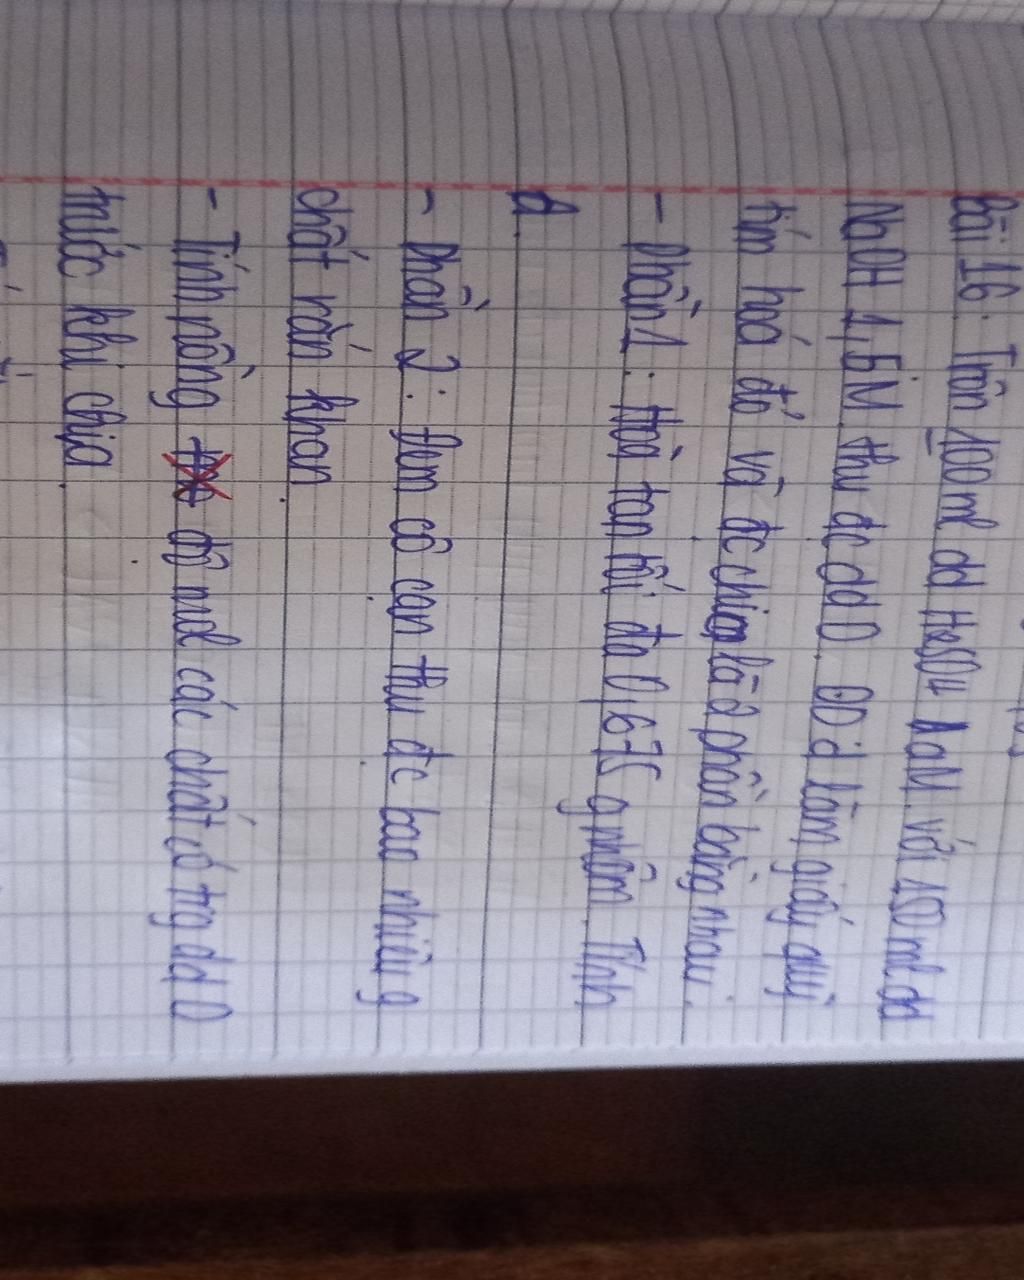 Bài 16: Trộn 100ml dd H2SO4 AaM với 150ml dd
NaOH 1,5M thu đc dd D. DD d làm giấy quỳ
tím hoá đỏ và đc chia là 2 phần bằng nhau.
- Phần 1: Hoà tan tối đa 0,675 g nhôm. Tính
A
- Phần 2: Đem cô cạn thu đc bao nhiêu g
chất rắn khan
- Tính nồng độ mol các chất có trg dd D
trước khi chia